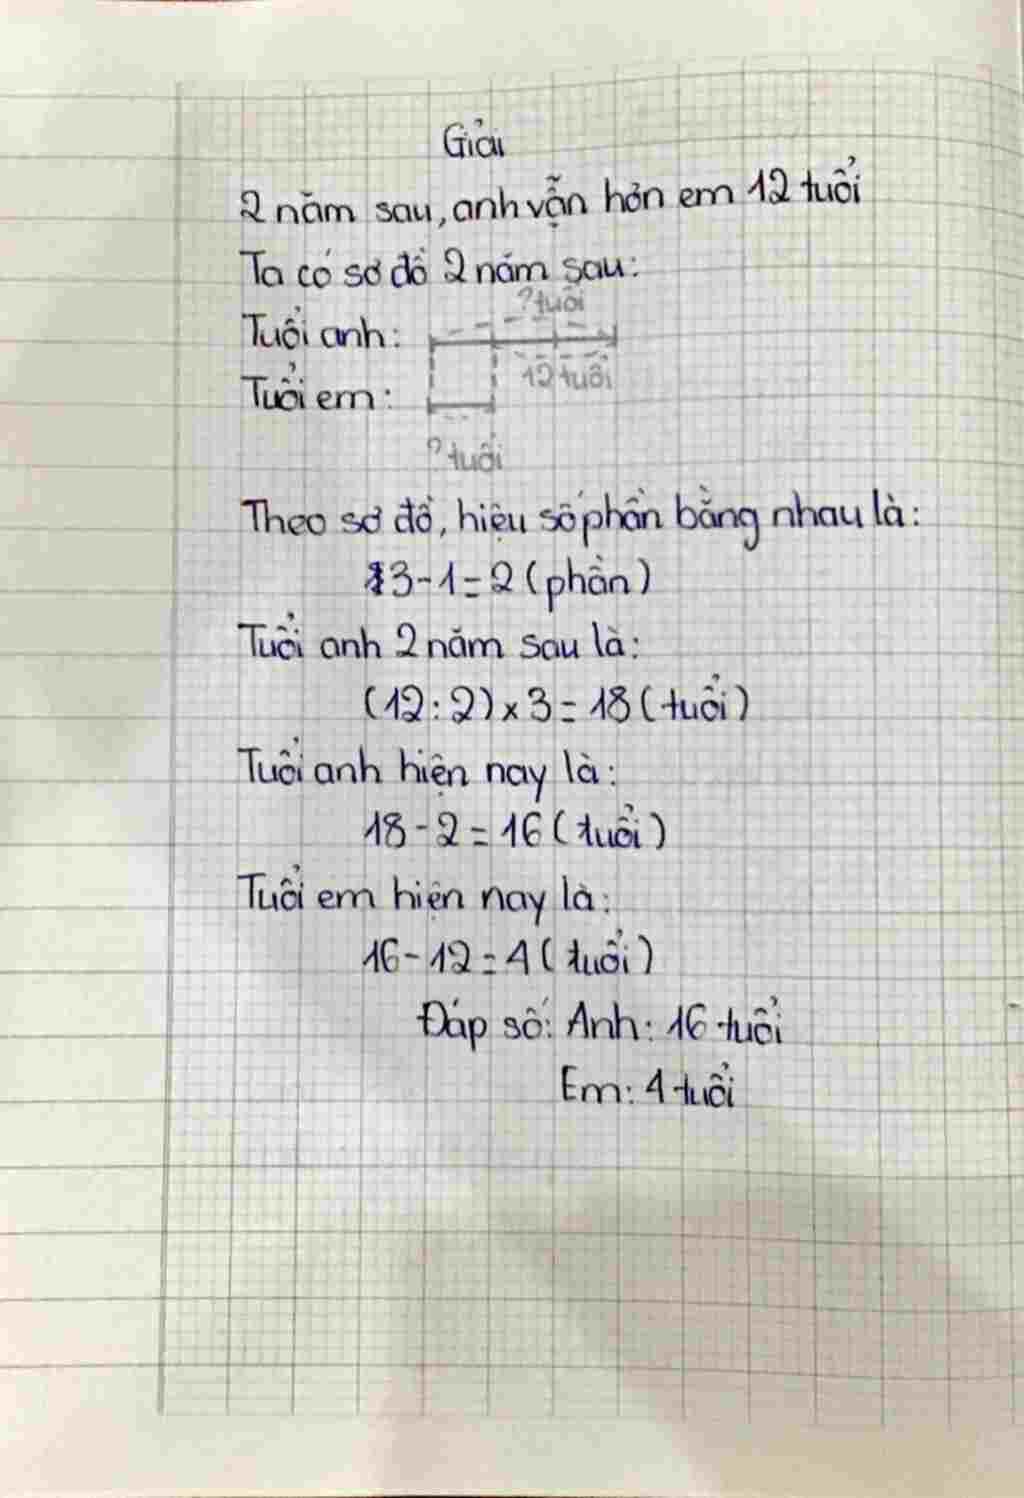 Giải
2 năm sau, anh vẫn hơn em 12 tuổi
Ta có sơ đồ 2 năm sau:
? tuổi
Tuổi anh:
12 tuổi
Tuổi em:
? tuổi
Theo sơ đồ, hiệu số phần bằng nhau là:
3-1=2 (phần)
Tuổi anh 2 năm sau là:
(12:2)×3=18 (tuổi)
Tuổi anh hiện nay là:
18-2=16 (tuổi)
Tuổi em hiện nay là:
16-12=4 (tuổi)
Đáp số: Anh: 16 tuổi
Em: 4 tuổi